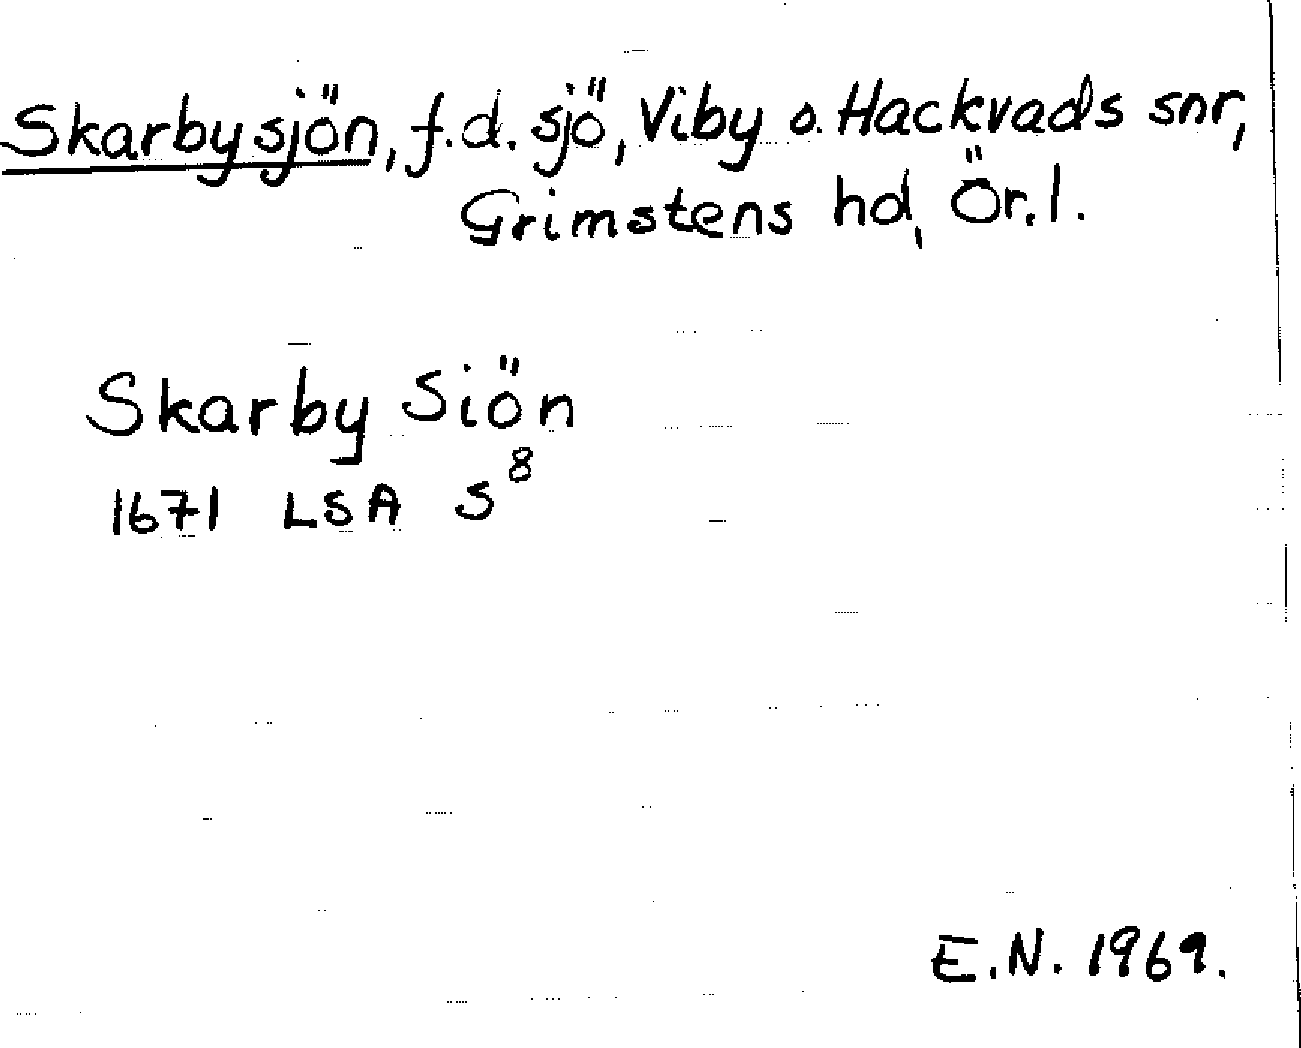 Skarbysjön, f.d. sjö, Viby o. Hackvads snr,
Grimstens hd, Ör.l.
Skarby Siön
1671 LSA S⁸
E.N. 1969.